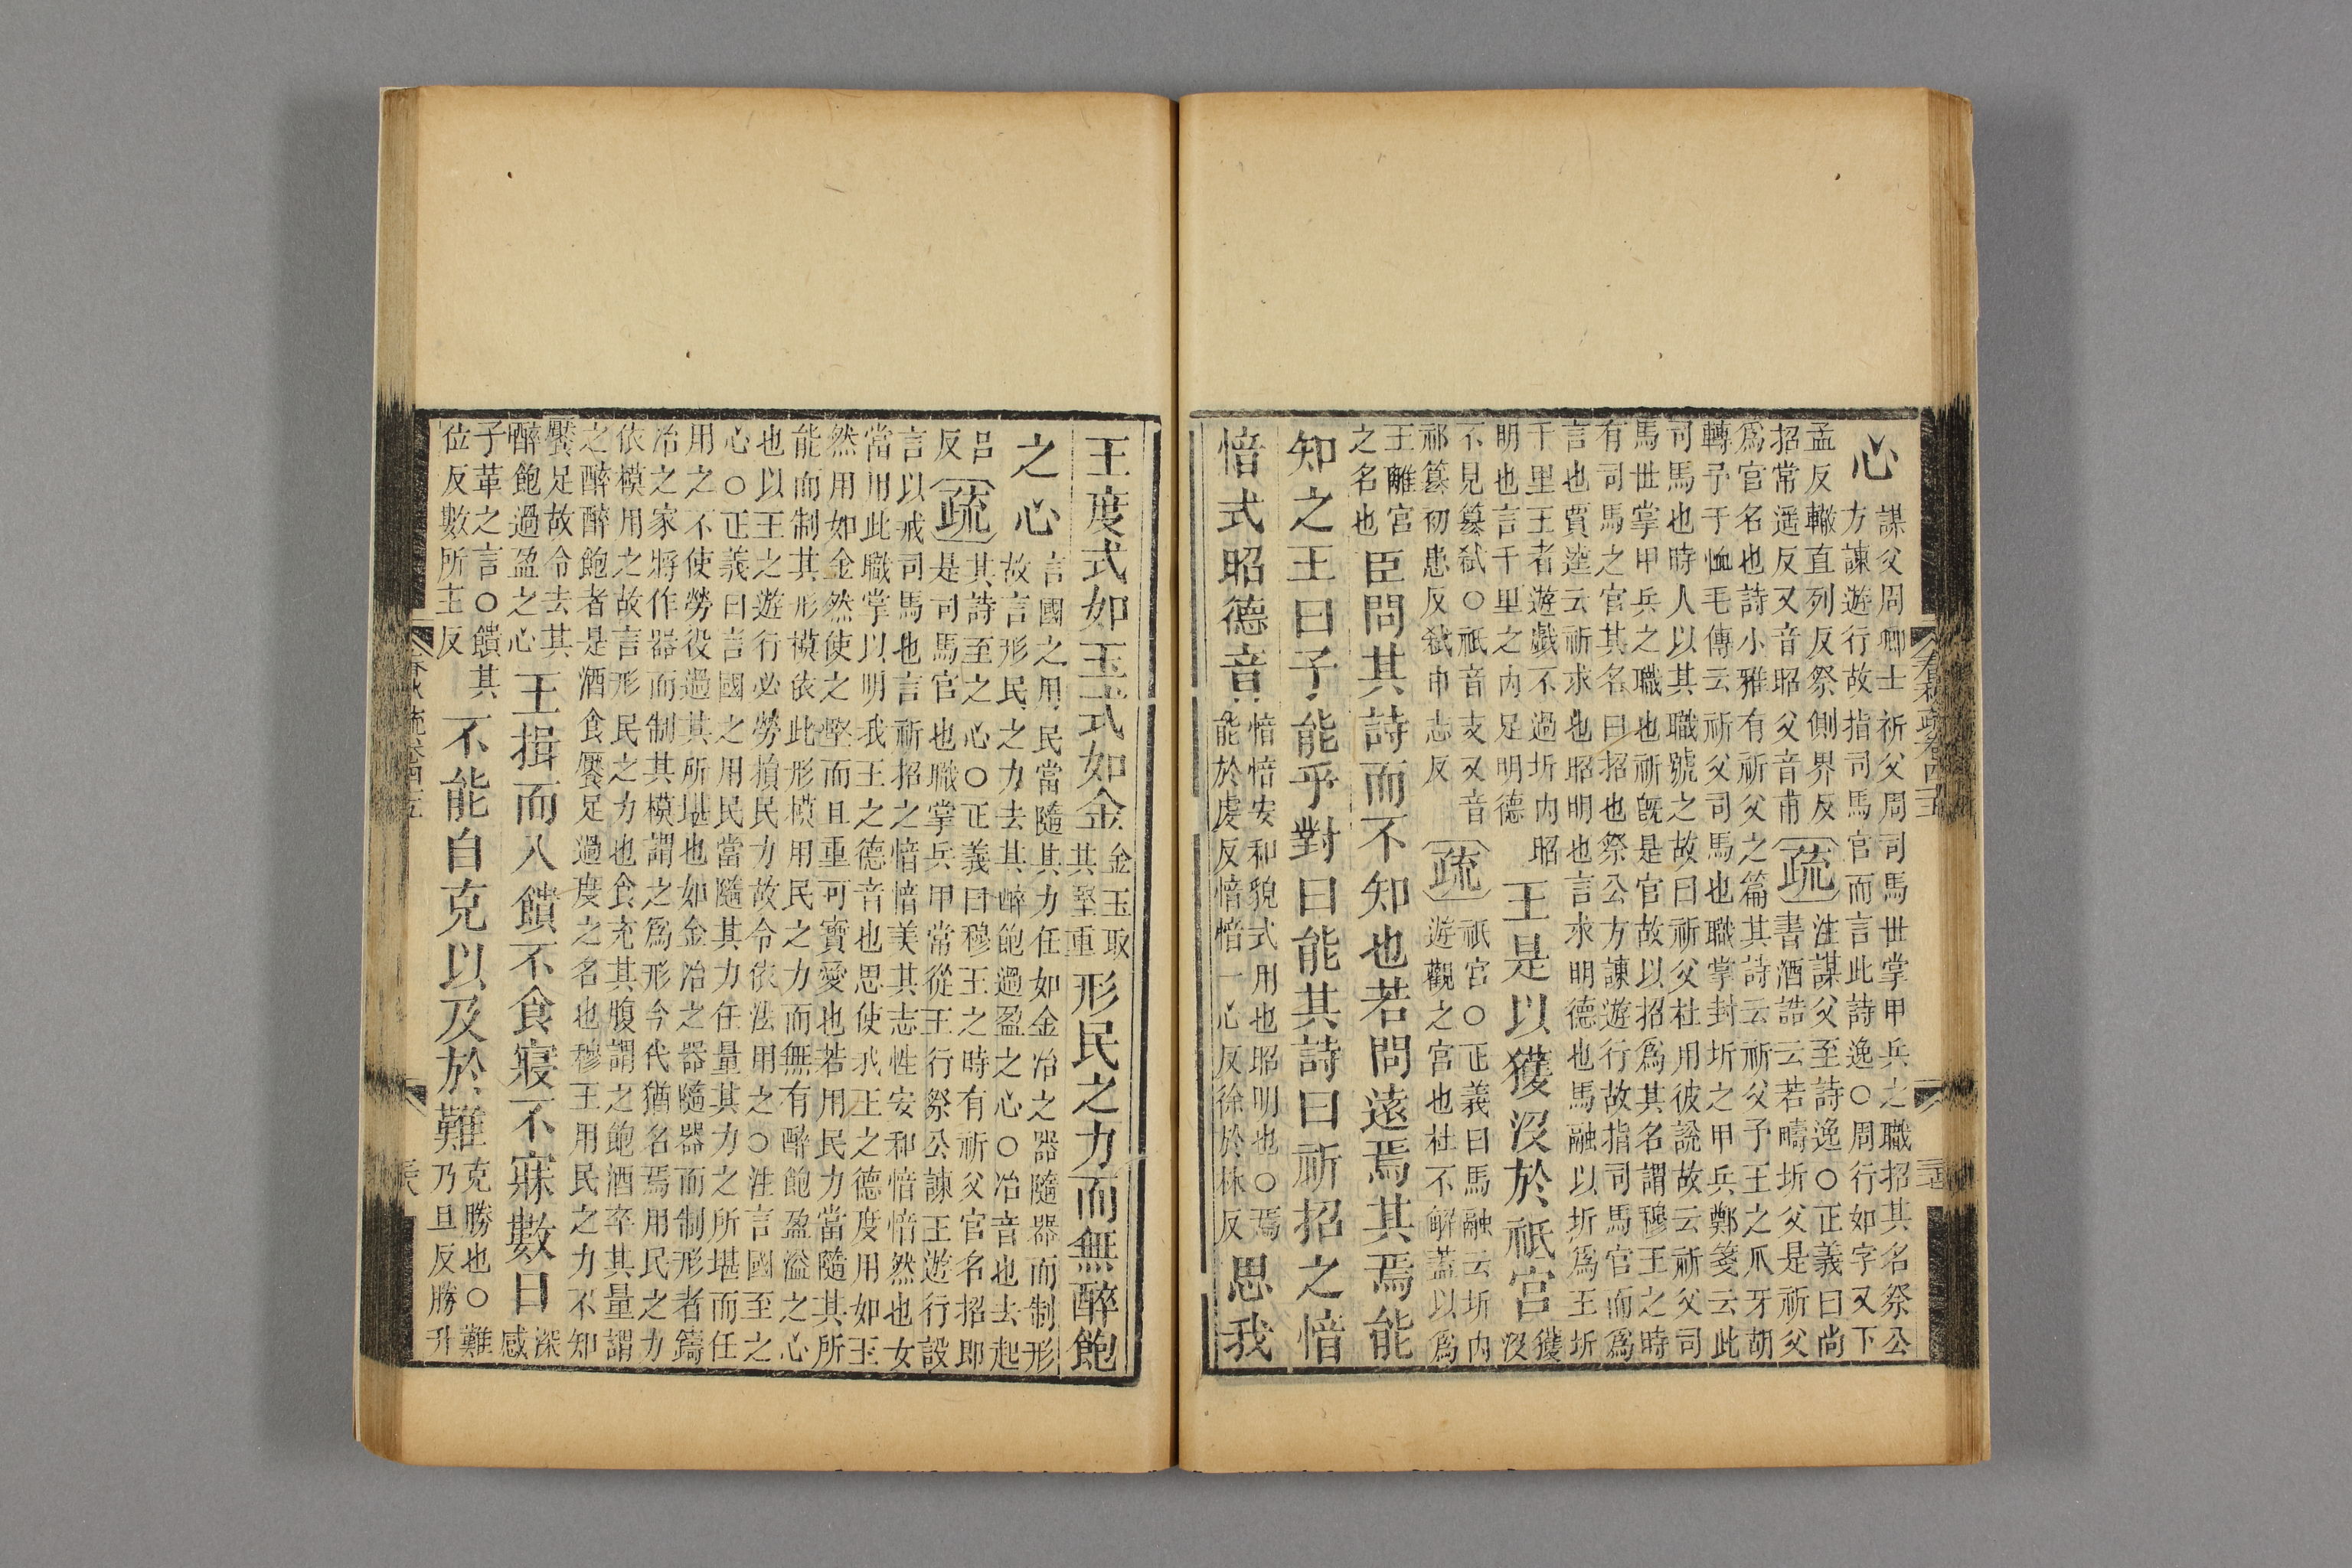 心
謀父周卿士祈父周司馬世掌甲兵之職招其名祭公
方諫遊行故指司馬官而言此詩逸○周行如字又下
孟反轍直列反祭側界反
招常遥反又音昭父音甫
疏
注謀父至詩逸○正義曰尚
書酒誥云若疇圻父是祈父
爲官名也詩小雅有祈父之篇其詩云祈父予王之爪牙胡
轉予于恤毛傳云祈父司馬也職掌封圻之甲兵鄭箋云此
司馬也時人以其職號之故曰祈父杜用彼説故云祈父司
馬世掌甲兵之職也祈既是官故以招爲其名謂穆王之時
有司馬之官其名曰招也祭公方諫遊行故指司馬官而爲
言也賈逵云祈求也昭明也言求明德也馬融以圻爲王圻
千里王者遊戯不過圻内昭
明也言千里之内足明德
王是以獲沒於祗宮
獲
沒
不見篡弑○祇音支又音
祁篡初患反弑申志反
疏
祇宮○正義曰馬融云圻内
遊觀之宮也杜不解蓋以爲
王離宮
之名也
臣問其詩而不知也若問遠焉其焉能
知之王曰子能乎對曰能其詩曰祈招之愔
愔式昭德音
愔愔安和貌式用也昭明也○焉
能於虔反愔愔一心反徐於林反
思我
王度式如玉式如金
金玉取
其堅重
形民之力而無醉飽
之心
言國之用民當隨其力任如金冶之器隨器而制形
故言形民之力去其醉飽過盈之心○冶音也去起
呂
反
疏
其詩至之心○正義曰穆王之時有祈父官名招即
是司馬官也職掌兵甲常從王行祭公諫王遊行設
言以戒司馬也言祈招之愔愔美其志性安和愔愔然也女
當用此職掌以明我王之德音也思使我王之德度用如玉
然用如金然使之堅而且重可寶愛也若用民力當隨其所
能而制其形模依此形模用民之力而無有醉飽盈溢之心
也以王之遊行必勞損民力故令依法用之○注言國至之
心○正義曰言國之用民當隨其力任量其力之所堪而任
用之不使勞役過其所堪也如金冶之器隨器而制形者鑄
冶之家將作器而制其模謂之爲形今代猶名焉用民之力
依模用之故言形民之力也食充其腹謂之飽酒卒其量謂
之醉醉飽者是酒食饜足過度之名也穆王用民之力不知
饜足故令去其
醉飽過盈之心
王揖而入饋不食寢不寐數日
深
感
子革之言○饋其
位反數所主反
不能自克以及於難
克勝也○難
乃旦反勝升